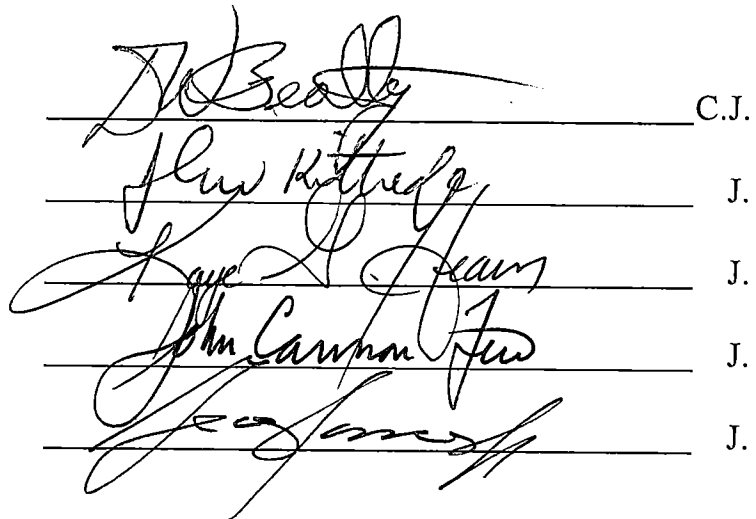 DWBeatty C.J.
John Kittredge J.
Kaye G Hearn J.
John Cannon Few J.
J.